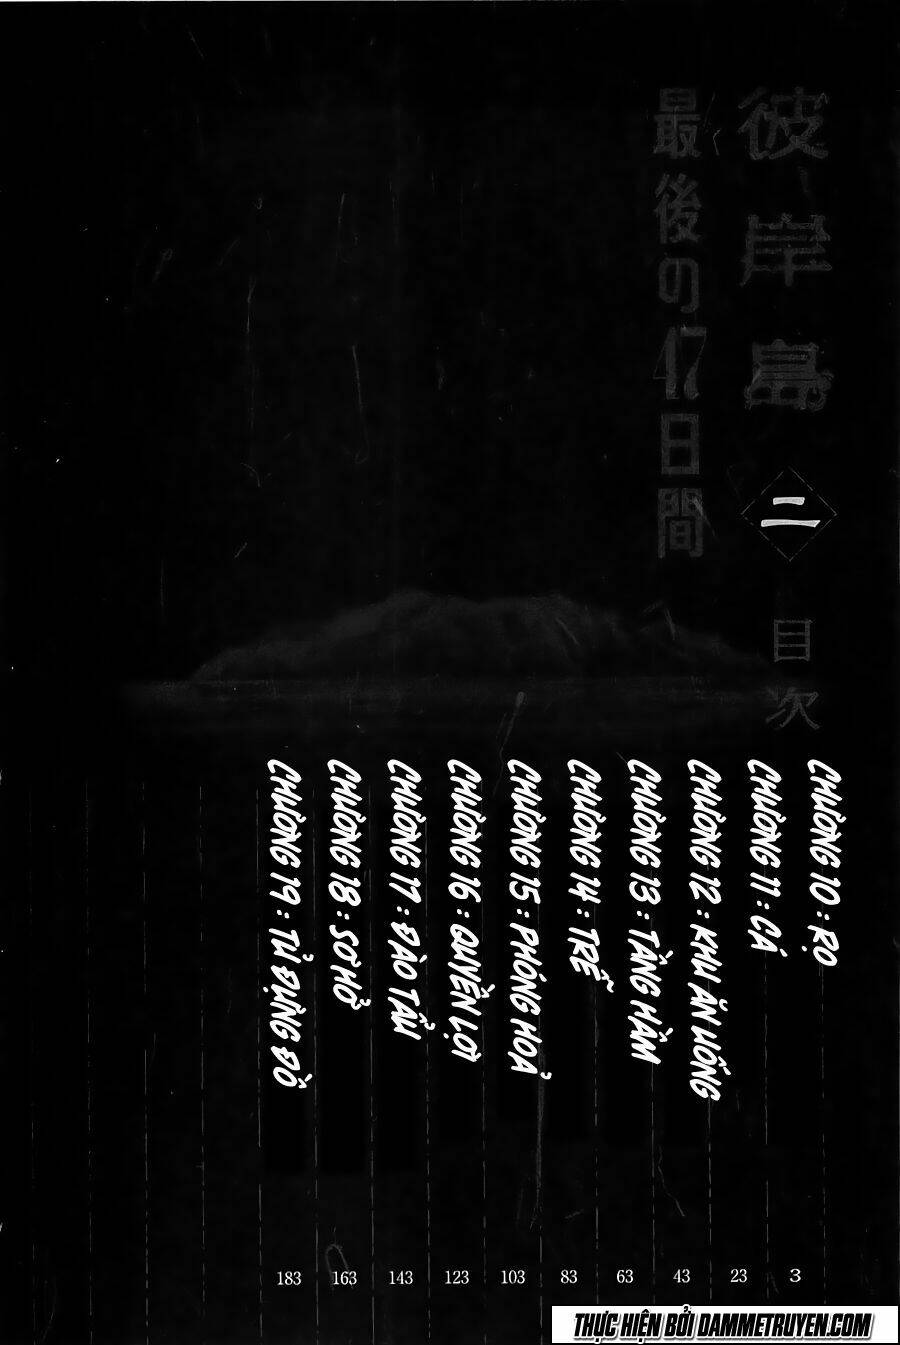 彼岸島
最後の47日間
二
目次
CHƯƠNG 10 : RỌ
CHƯƠNG 11 : CÁ
CHƯƠNG 12 : KHU ĂN UỐNG
CHƯƠNG 13 : TẦNG HẦM
CHƯƠNG 14 : TRỄ
CHƯƠNG 15 : PHÓNG HỎA
CHƯƠNG 16 : QUYỀN LỢI
CHƯƠNG 17 : ĐÀO TẨU
CHƯƠNG 18 : SƠ HỞ
CHƯƠNG 19 : TỦ ĐỰNG ĐỒ
3
23
43
63
83
103
123
143
163
183
THỰC HIỆN BỞI DAMMETRUYEN.COM